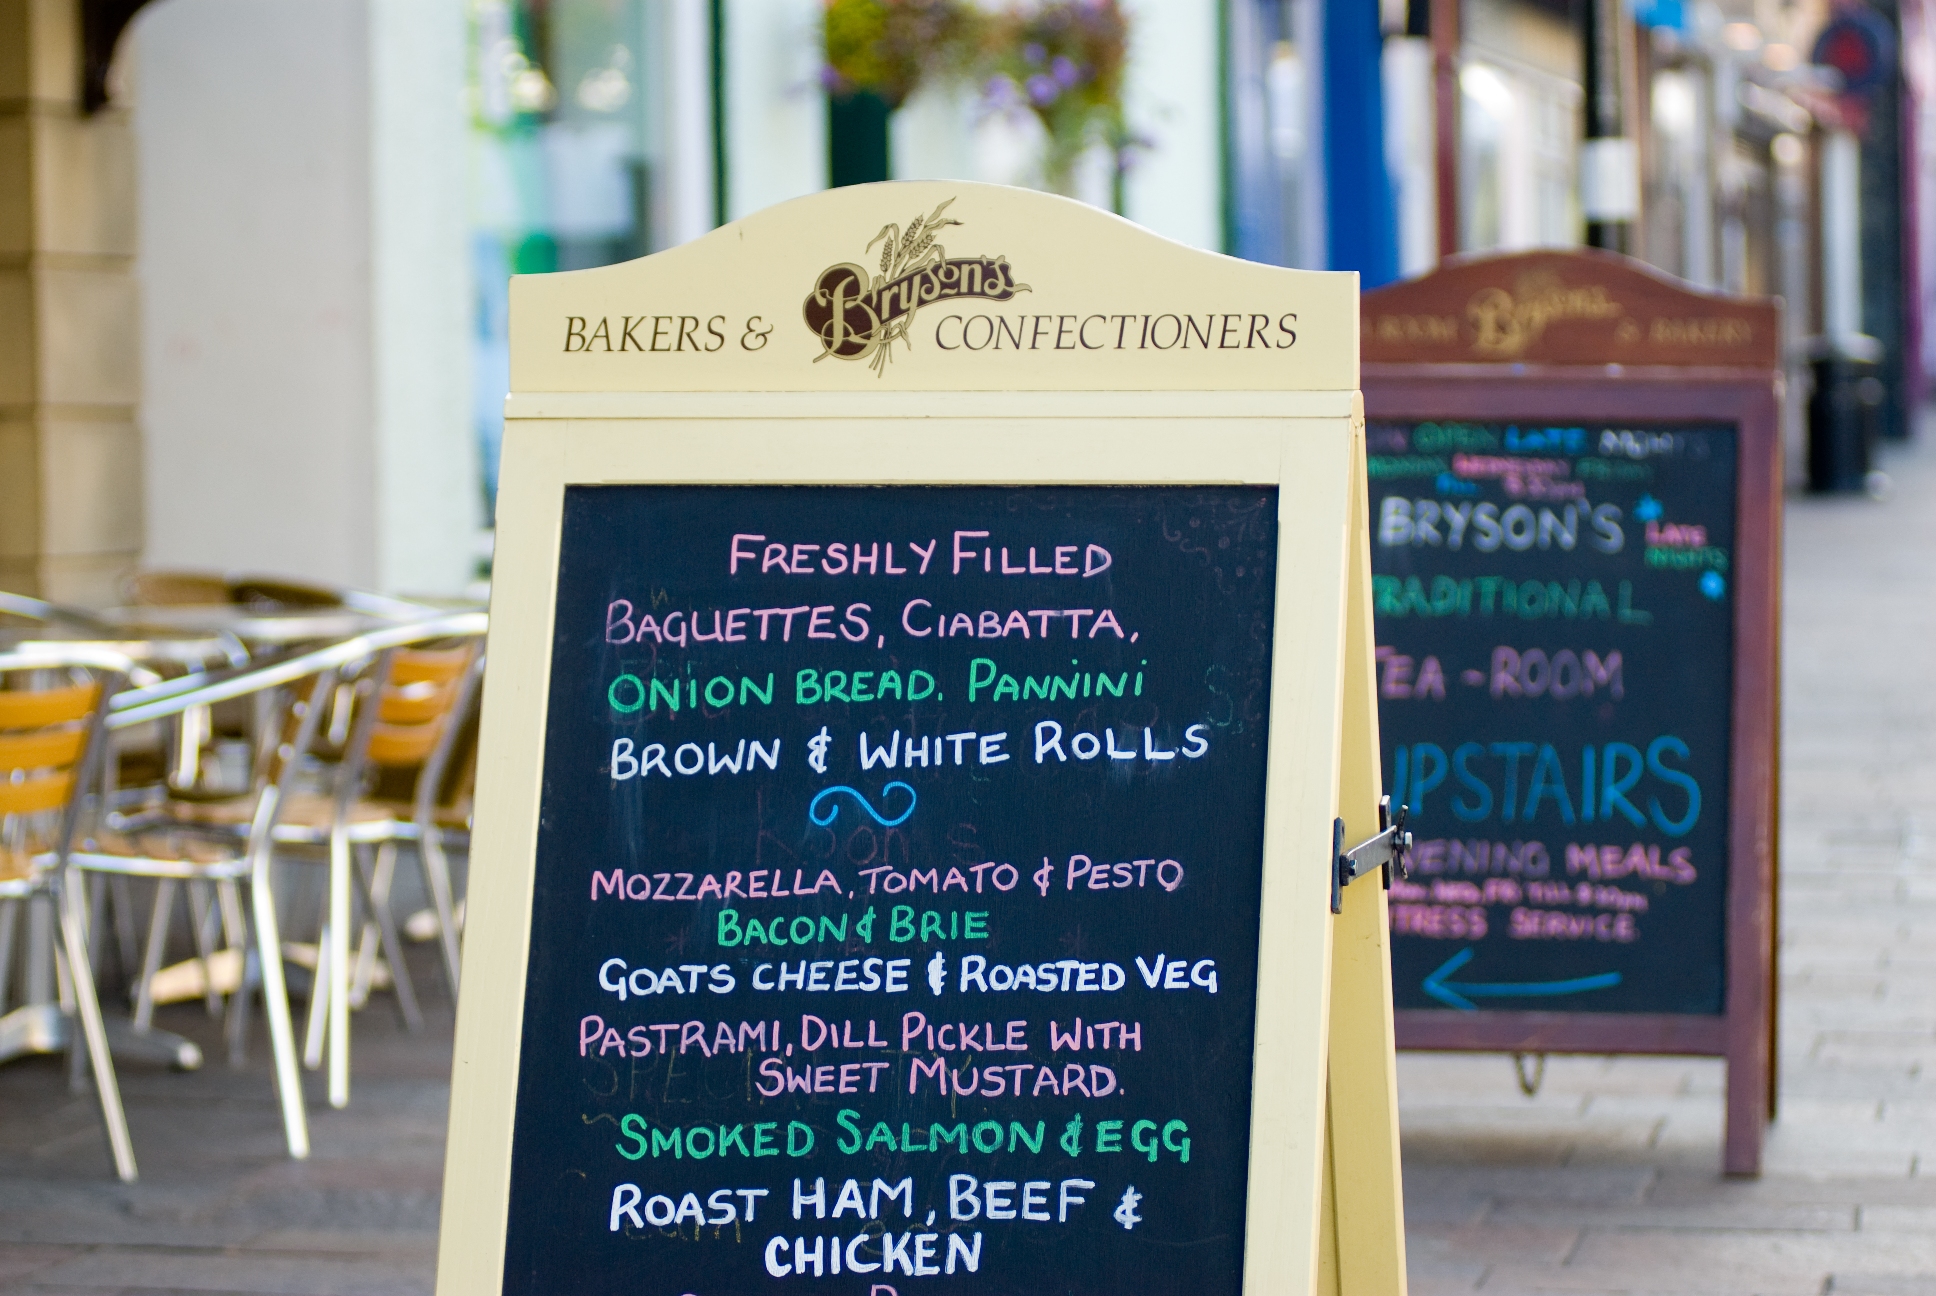 Bryson's
BAKERS & CONFECTIONERS
FRESHLY FILLED
BAGUETTES, CIABATTA,
ONION BREAD. PANNINI
BROWN & WHITE ROLLS
MOZZARELLA, TOMATO & PESTO
BACON & BRIE
GOATS CHEESE & ROASTED VEG
PASTRAMI, DILL PICKLE WITH
SWEET MUSTARD.
SMOKED SALMON & EGG
ROAST HAM, BEEF &
CHICKEN
Bryson's
& BAKERY
OPEN LATE
BRYSON'S
LATE
NIGHTS
TRADITIONAL
TEA-ROOM
UPSTAIRS
EVENING MEALS
SERVICE